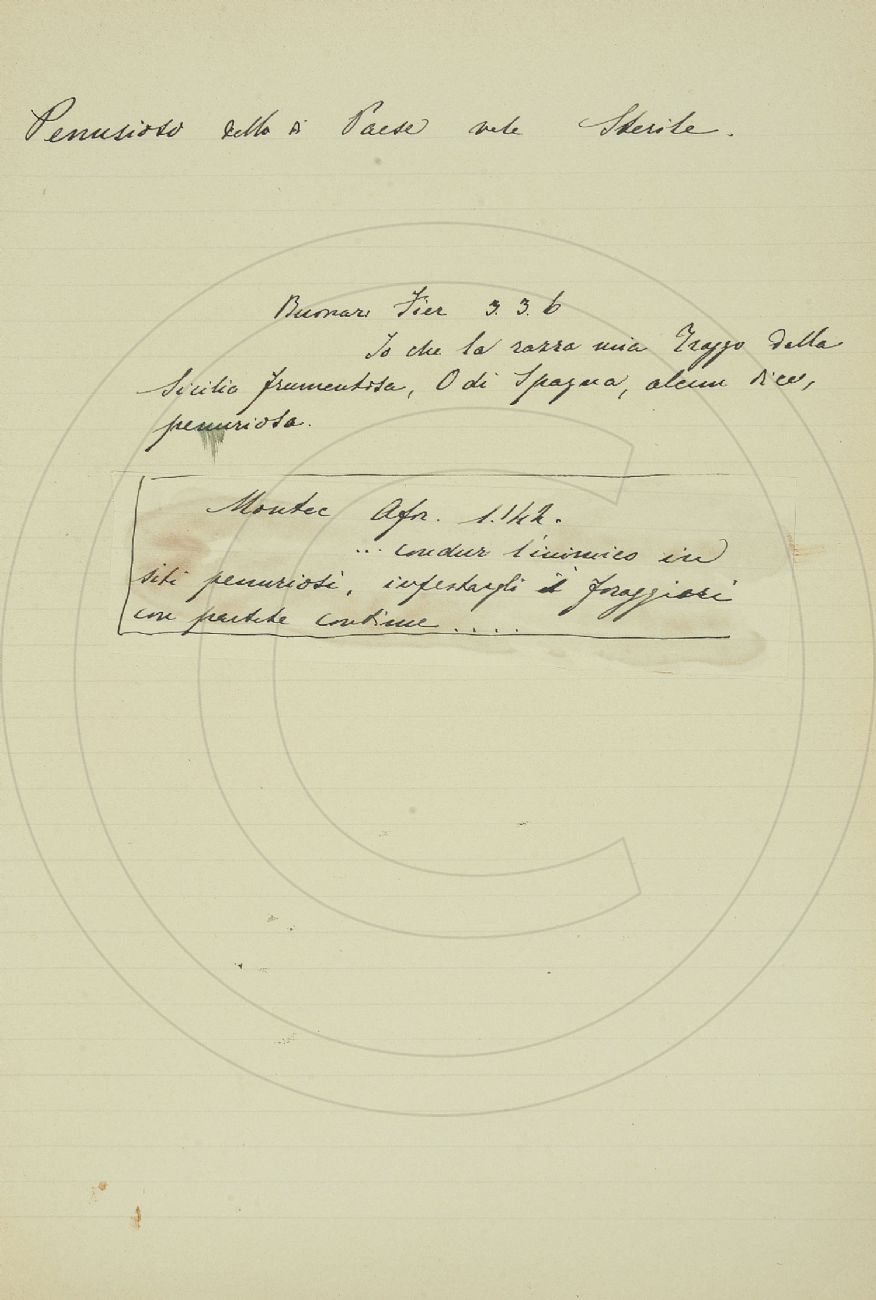 Penurioso detto di Paese vale Sterile.
Buonar. Fier 3. 3. 6
Io che la razza mia Traggo della
Sicilia frumentosa, O di Spagna, alcun dice,
penuriosa.
Montec Afor. 1.142.
... condur l'inimico in
siti penuriosi, infestargli i foraggieri
con partite continue ....